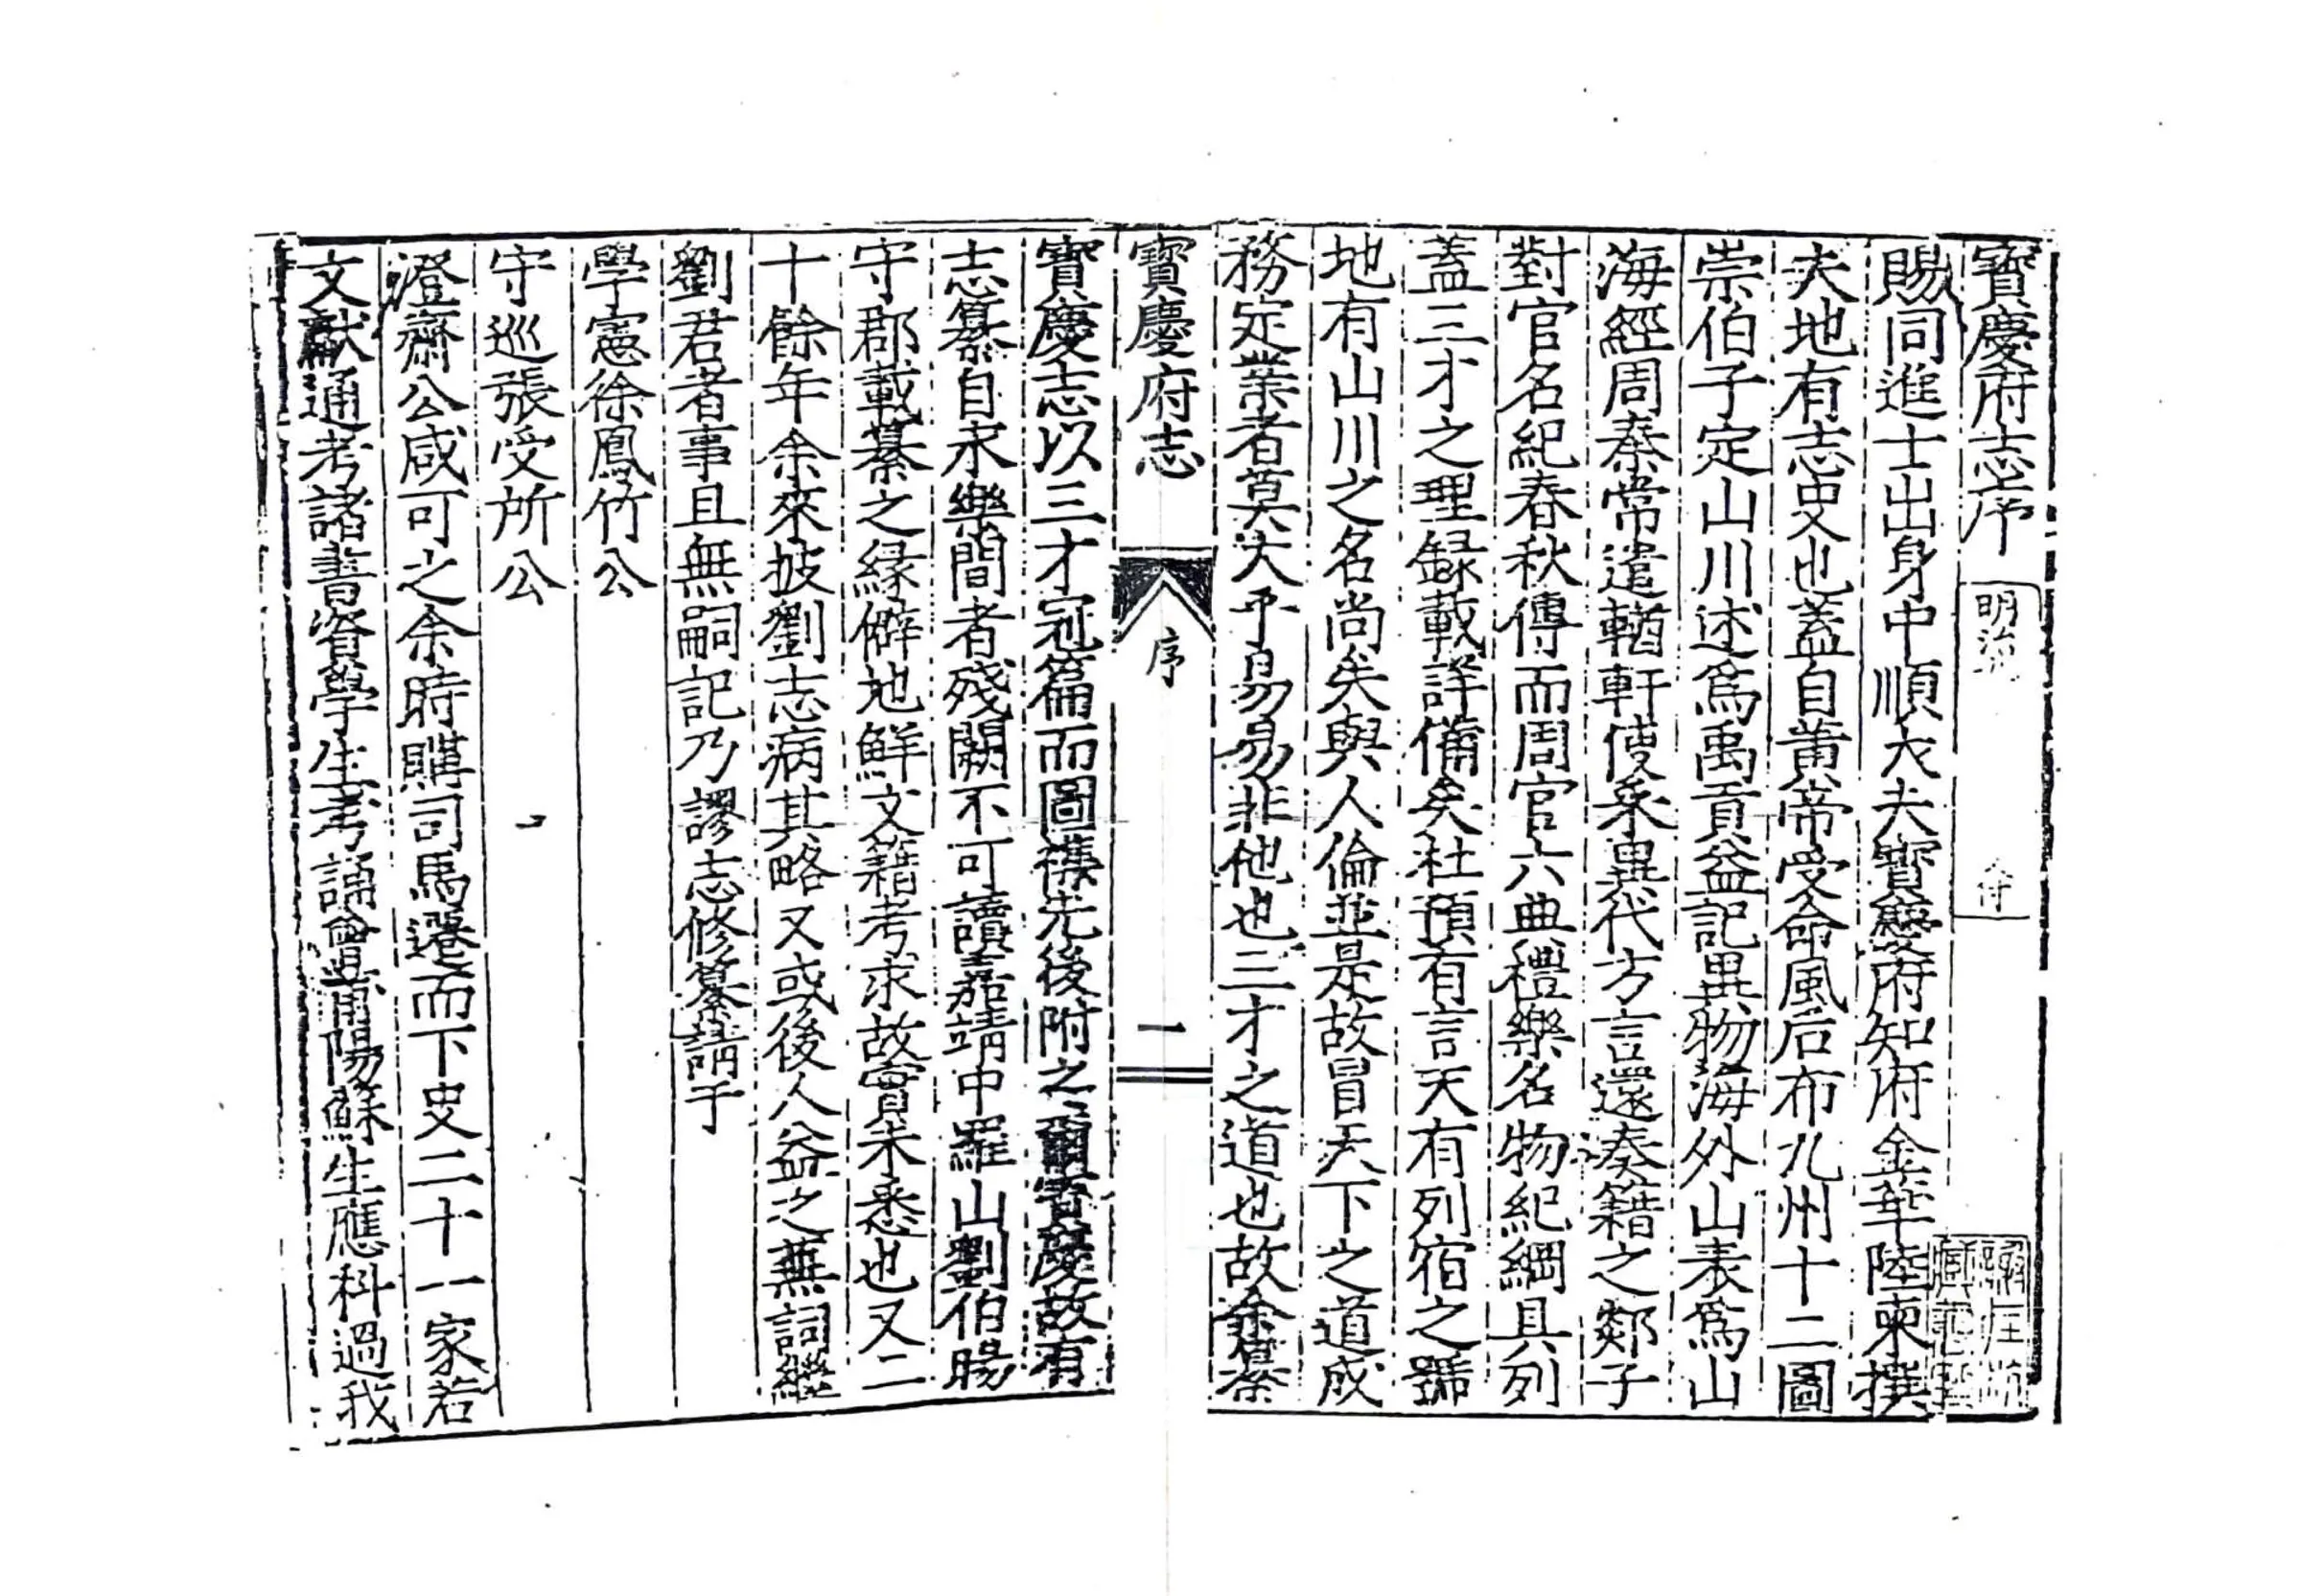 寶慶府志序
明治
賜同進士出身中順大夫寶慶府知府金華陸柬撰
夫地有志史也蓋自黃帝受命風后布九州十二圖
崇伯子定山川述爲禹貢益記異物海外山表爲山
海經周秦常遣輶軒使采異代方言還奏籍之郯子
對官名紀春秋傳而周官六典禮樂名物紀綱具列
蓋三才之理錄載詳備矣杜預有言天有列宿之號
地有山川之名尚矣與人倫並是故冒天下之道成
務定業者莫大乎易易非他也三才之道也故余纂
寶慶府志
序
一
寶慶志以三才冠篇而圖搆先後附之爾寶慶故有
志纂自永樂間者殘闕不可讀嘉靖中羅山劉伯賜
守郡載纂之緣僻地鮮文籍考求故實未悉也又二
十餘年余來披劉志病其略又或後人益之蕪詞繼
劉君者事且無嗣記乃謬志修纂請于
學憲徐鳳竹公
守巡張受所公
澄齋公咸可之余時購司馬遷而下史二十一家若
文獻通考諸書資學生考誦會衡陽蘇生應科過我